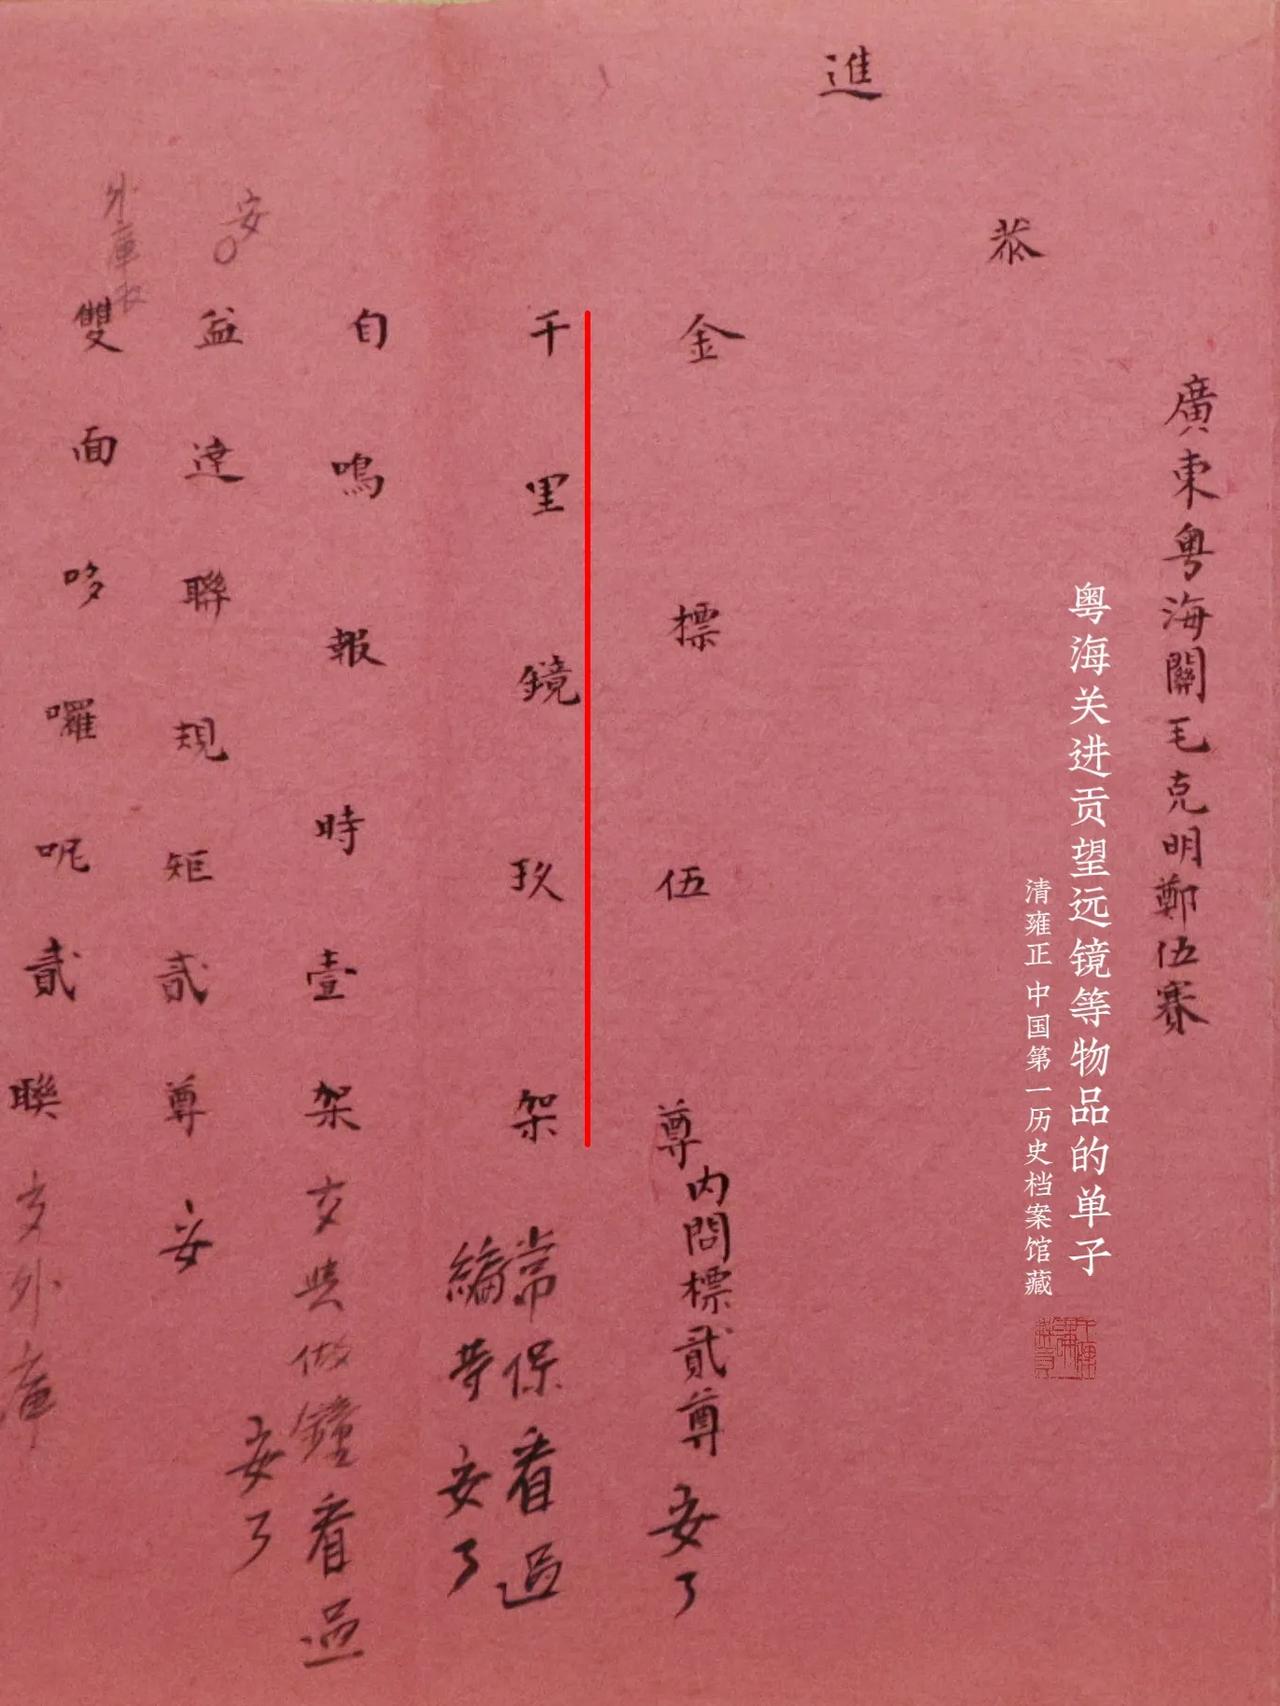 廣東粵海關毛克明鄭伍賽
粤海关进贡望远镜等物品的单子
清雍正 中国第一历史档案馆藏
恭
進
金標伍尊内問標貳尊安了
千里鏡玖架常保看過
編等安了
自鳴報時壹架交與做鐘看過
安了
安
益達聯規矩貳尊安
外庫收
雙面哆囉呢貳聯交外庫